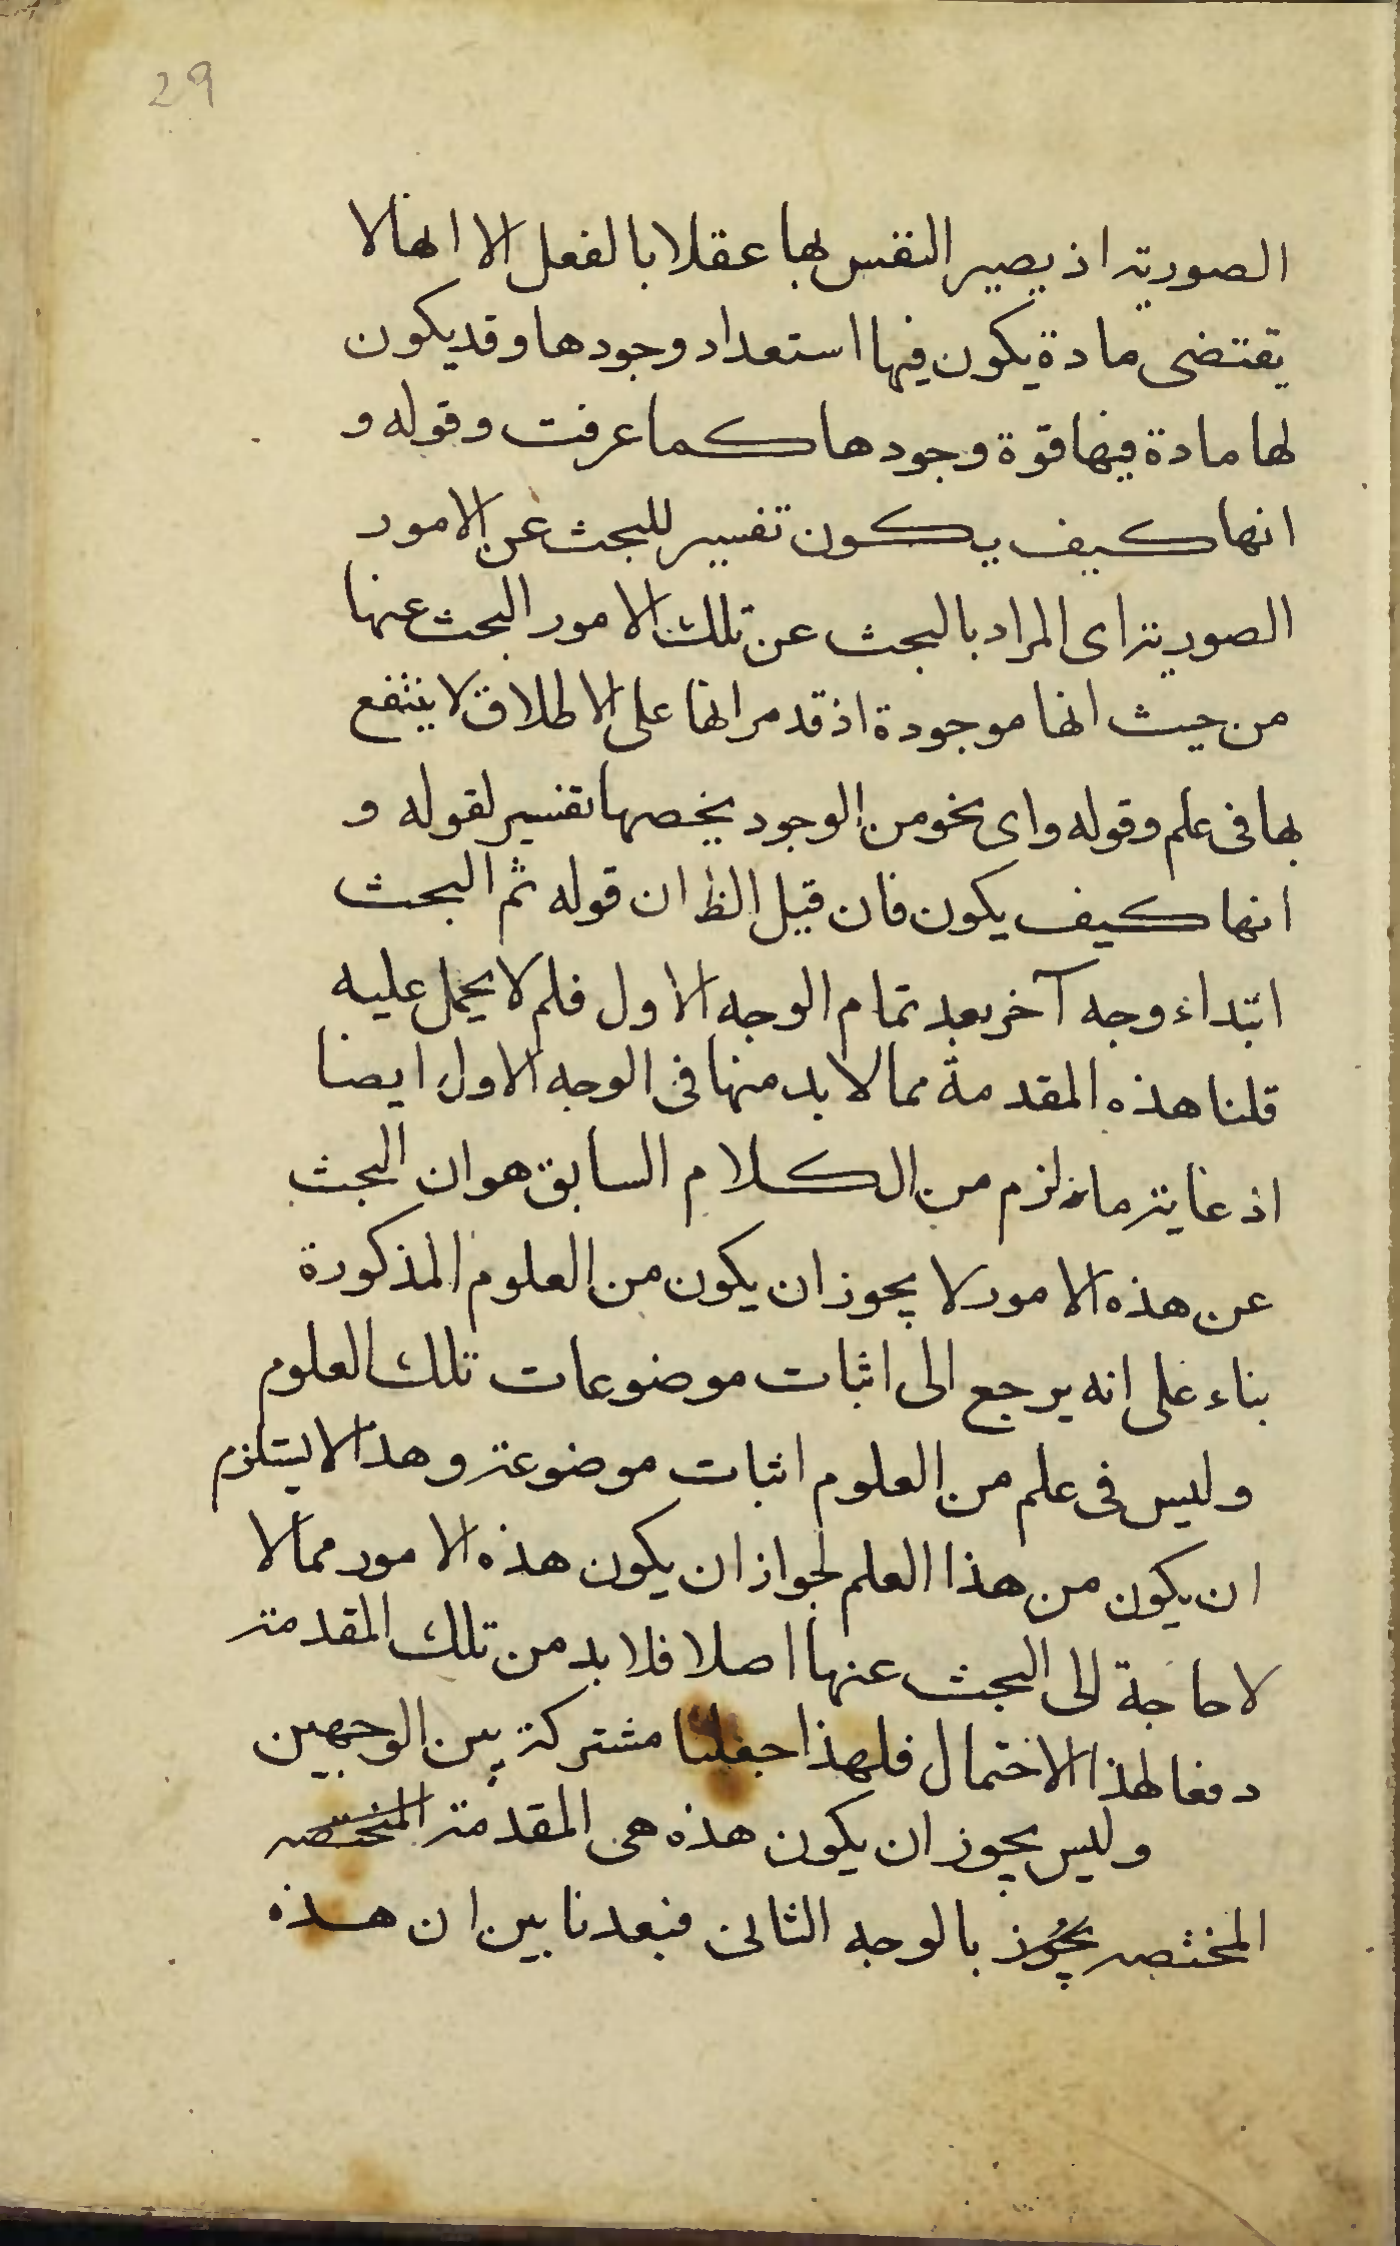 29
الصورية اذ يصير النفس بها عقلا بالفعل الا انها لا
يقتضى مادة يكون فيها استعداد وجودها وقد يكون
لها مادة فيها قوة وجودها كما عرفت وقوله و
انها كيف يكون تفسير للبحث عن الامور
الصورية اى المراد بالبحث عن تلك الامور البحث عنها
من حيث انها موجودة اذ قد مر انها على الاطلاق لا ينتفع
بها فى علم وقوله واى نحو من الوجود يخصها تفسير لقوله و
انها كيف يكون فان قيل الظ ان قوله ثم البحث
ابتداء وجه آخر بعد تمام الوجه الاول فلم لا يحمل عليه
قلنا هذه المقدمة مما لا بد منها فى الوجه الاول ايضا
اذ غاية ما لزم من الكلام السابق هو ان البحث
عن هذه الامور لا يجوز ان يكون من العلوم المذكورة
بناء على انه يرجع الى اثبات موضوعات تلك العلوم
وليس فى علم من العلوم اثبات موضوعة وهذا لا يستلزم
ان يكون من هذا العلم لجواز ان يكون هذه الامور مما لا
لا حاجة الى البحث عنها اصلا فلا بد من تلك المقدمة
دفعا لهذا الاحتمال فلهذا جعلنا مشتركة بين الوجهين
وليس يجوز ان يكون هذه هى المقدمة المختصه
المختصه يجوز بالوجه الثانى فبعدنا بين ان هذه